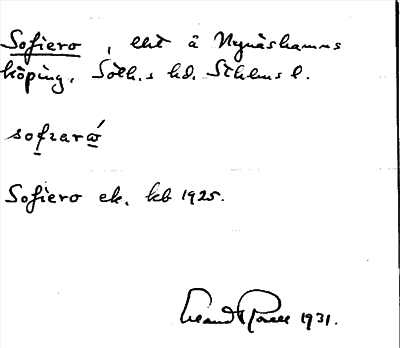 Sofiero, lht å Nynäshamns
köping, Söth.s hd. Sthlms l.
sofıarώ
Sofiero ek. kb 1925.
1931.